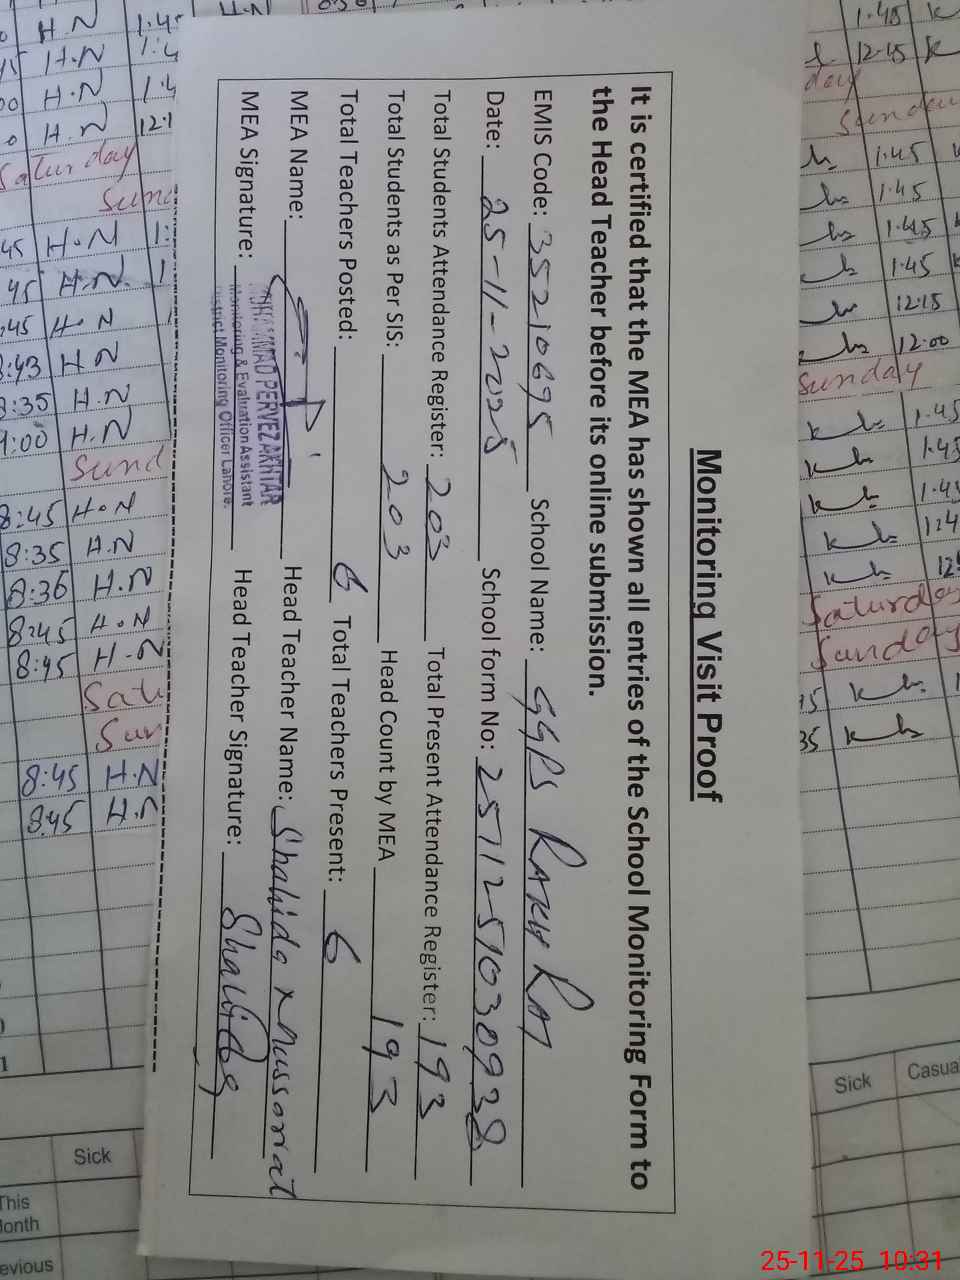 Monitoring Visit Proof
It is certified that the MEA has shown all entries of the School Monitoring Form to
the Head Teacher before its online submission.
EMIS Code: 35210695 School Name: GGPS RAKH RA
Date: 25-11-2025 School form No: 2511251030938
Total Students Attendance Register: 203 Total Present Attendance Register: 193
Total Students as Per SIS: 203 Head Count by MEA 193
Total Teachers Posted: 6 Total Teachers Present: 6
MEA Name: Head Teacher Name: Shahida Mussarrat
MUHAMMAD PERVEZ AKHTAR
Monitoring & Evaluation Assistant
District Monitoring Officer Lahore.
MEA Signature: Head Teacher Signature: Shahida
H.N 1:45
H.N
H.N
H.N
Saturday
Sunday
H.N
H.N
:45 H.N
8:43 H.N
8:35 H.N
9:00 H.N
Sund
8:45 H.N
8:35 H.N
8:36 H.N
8:45 H.N
8:45 H.N
Satu
Sun
8:45 H.N
8:45 H.N
1:45
12:15
day
Sunday
1:45
1:45
1:45
1:45
12:15
12:00
Sunday
1:45
1:45
1:45
Saturday
Sunday
Sick Casua
Sick
This
Month
evious
25-11-25 10:31